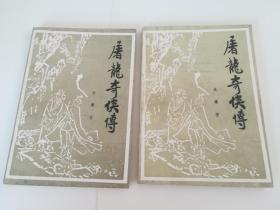 屠龍奇俠傳
屠龍奇俠傳